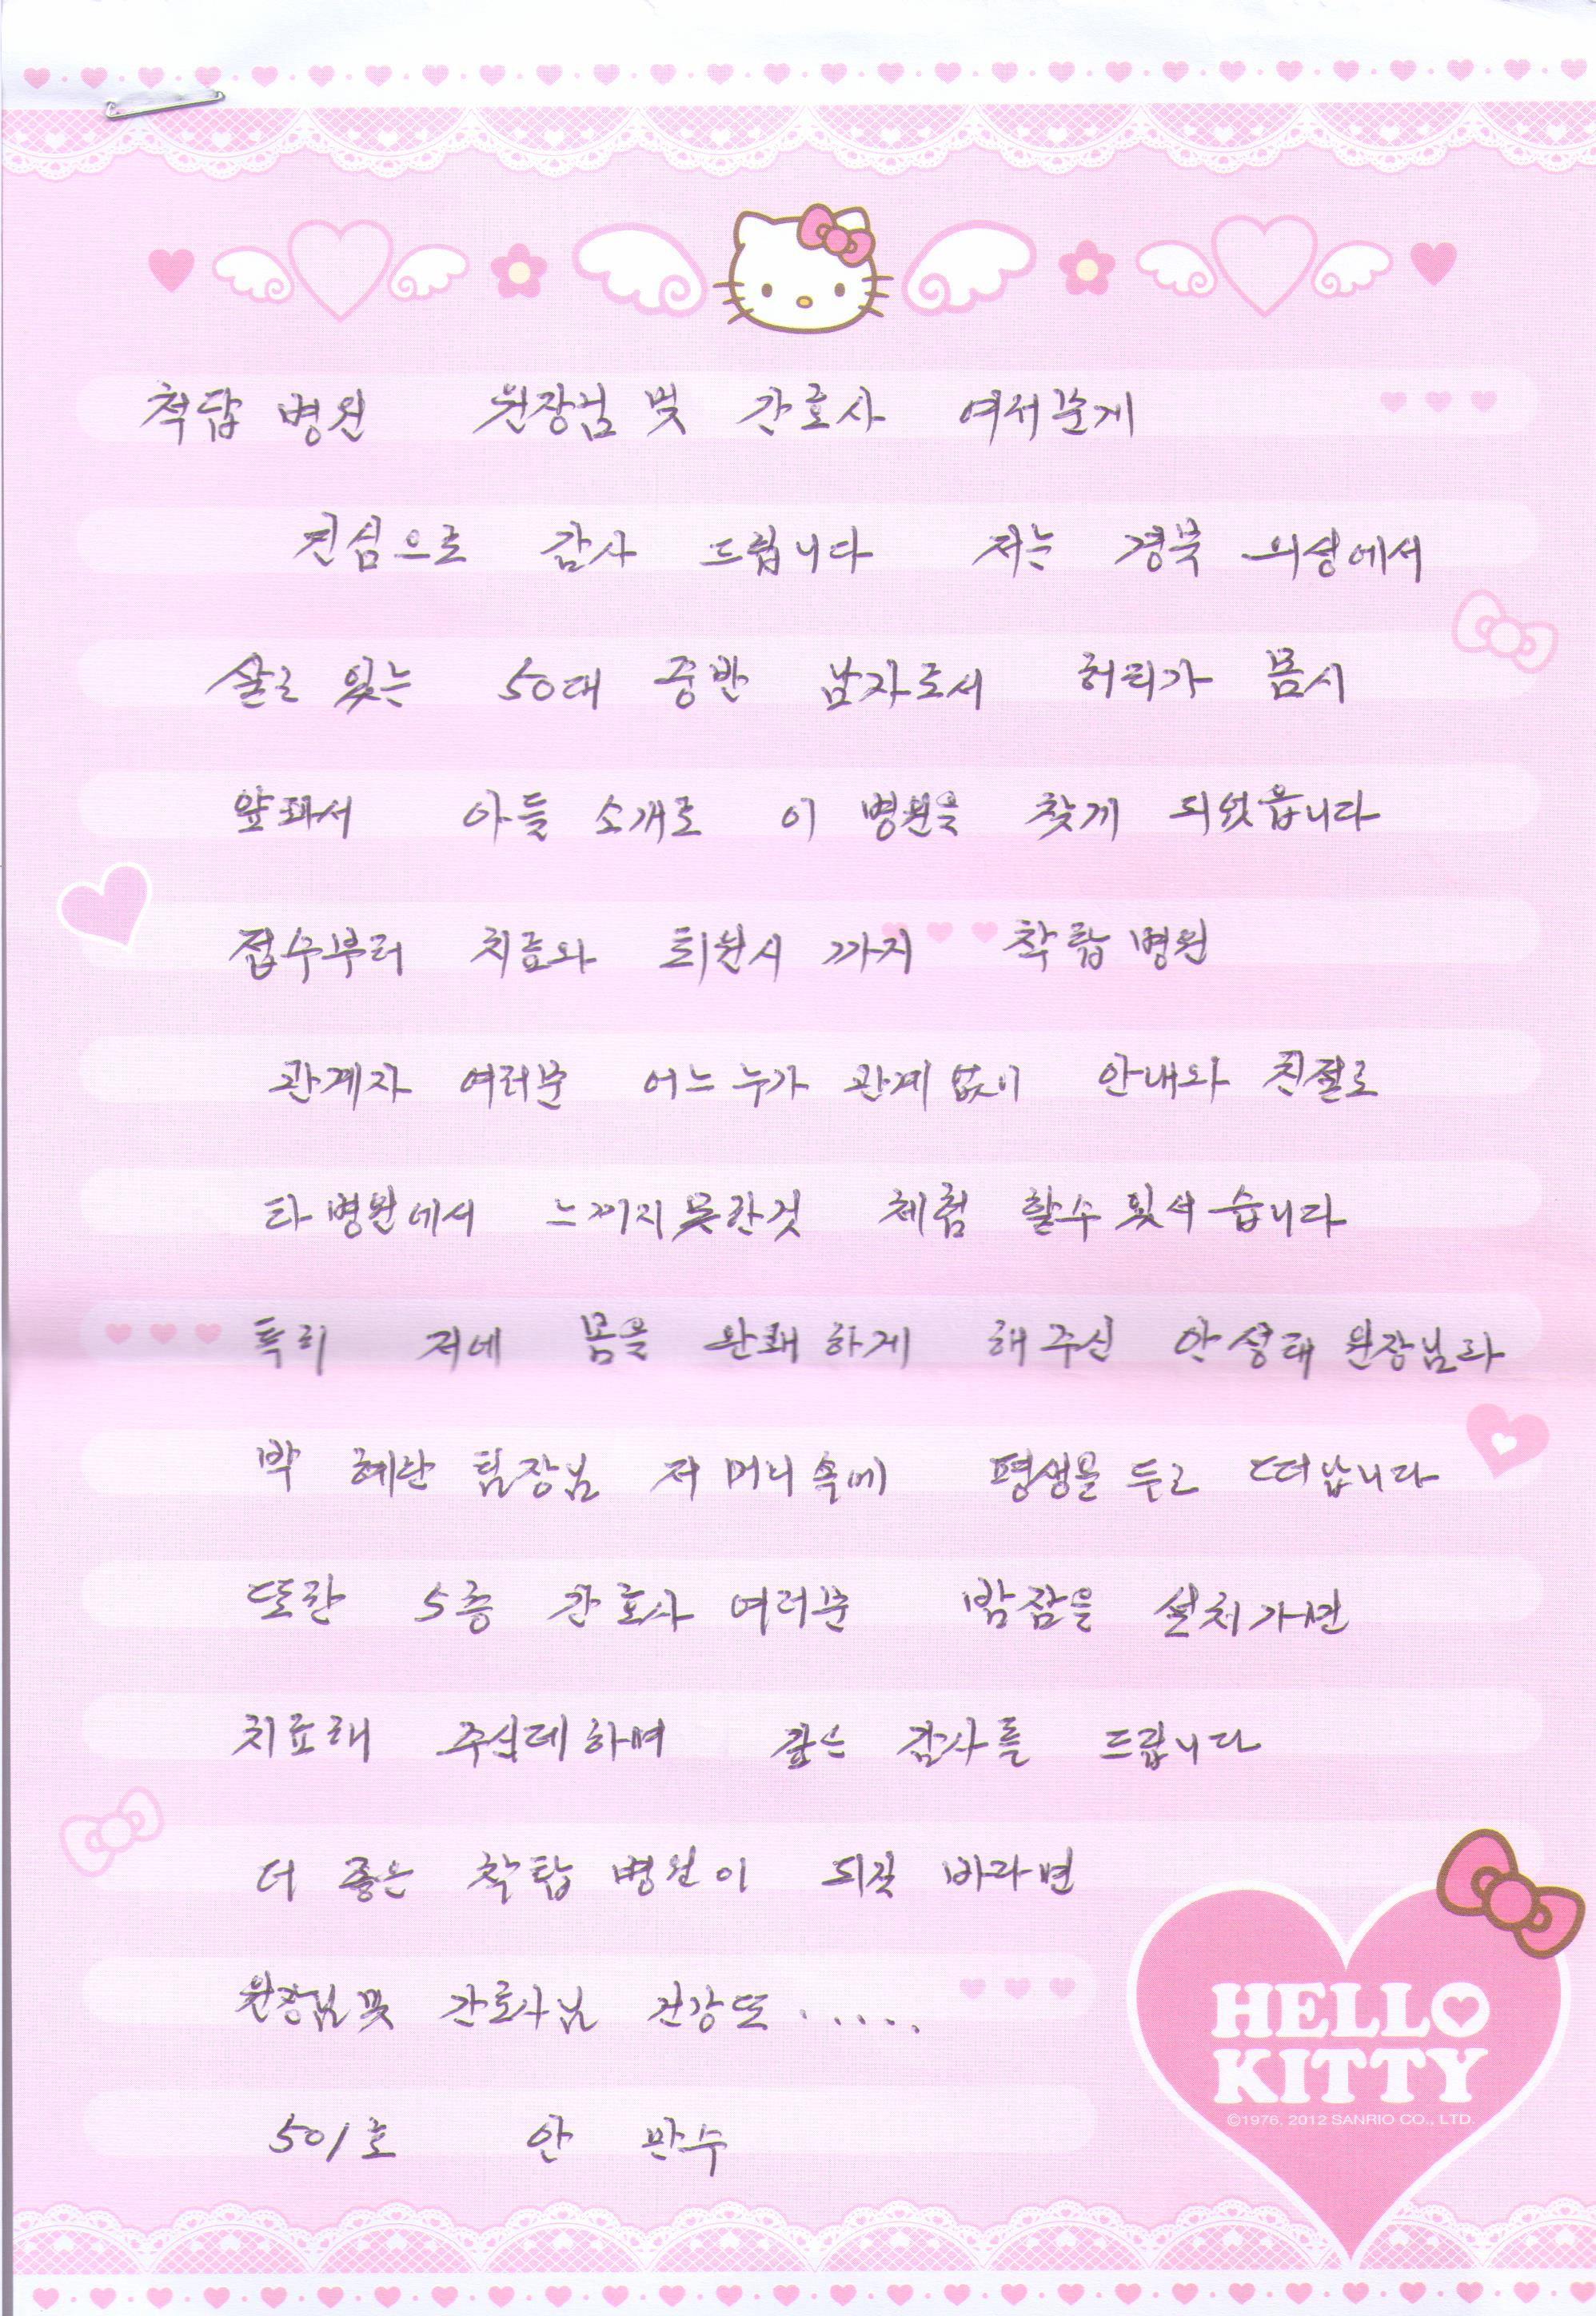 척탑 병원 원장님 및 간호사 여서분게
진심으로 감사 드립니다 저는 경북 의성에서
살고 있는 50대 중반 남자로서 허리가 몹시
앞퐈서 아들 소개로 이 병원을 찾게 되었읍니다
접수부터 치료와 퇴원시 까지 착탑 병원
관계자 여러분 어느 누가 관계 없이 안내와 친절로
타 병원에서 느끼지 못한것 체험 할수 있서 습니다
특히 저네 몸을 완쾌 하게 해 주신 안성태 원장님과
박 혜란 팀장님 저 머니 속에 평생을 두고 떠납니다
또한 5층 간호사 여러분 밤잠을 설치가면
치료해 주식데 하며 감사를 드립니다
더 좋은 착탑 병원이 되길 바라면
원장님 및 간호사님 건강도 . . . . .
501호 안 만수
HELLO
KITTY
©1976, 2012 SANRIO CO., LTD.